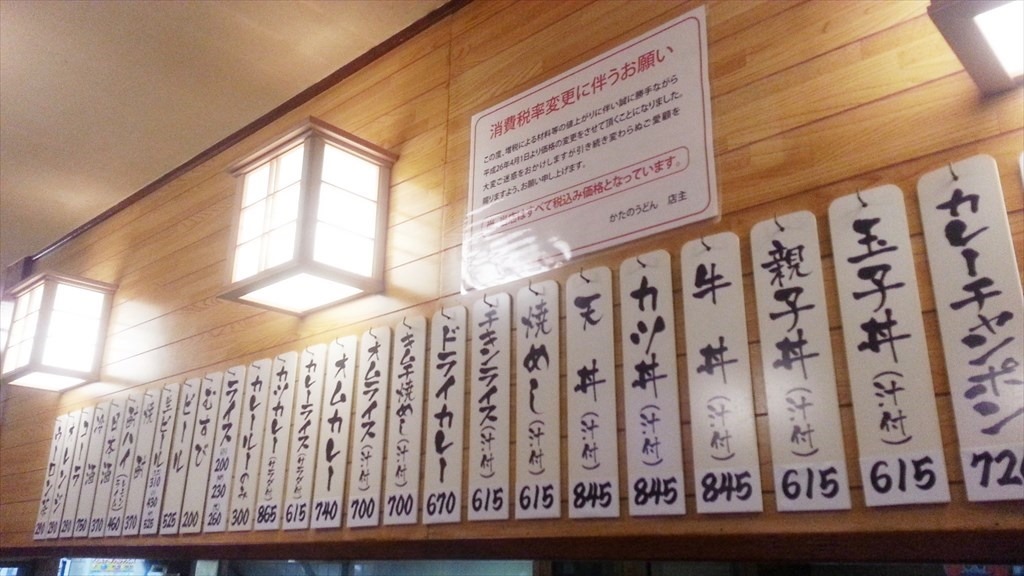 消費税率変更に伴うお願い
この度、増税による材料等の値上がりに伴い誠に勝手ながら
平成26年4月1日より価格の変更をさせて頂くことになりました。
大変ご迷惑をおかけしますが引き続き変わらぬご愛顧を
賜りますよう、お願い申し上げます。
すべて税込み価格となっています。
かたのうどん 店主
カレーチャンポン
玉子丼(汁付) 615
親子丼(汁付) 615
牛丼(汁付) 845
カツ丼(汁付) 845
天丼(汁付) 845
焼めし(汁付) 615
チキンライス(汁付) 615
ドライカレー 670
キムチ焼めし(汁付) 700
オムライス(汁付) 700
オムカレー 740
カレーライス(サラダ付) 615
カツカレー(サラダ付) 865
カレールーのみ 300
ライス 200 230 260
むすび 200
ビール 525
生ビール